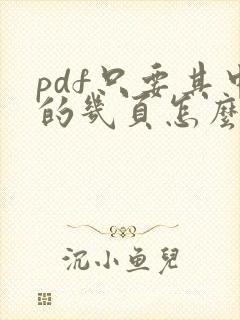 pdf只要其中
的幾頁怎麼
沉小鱼兒